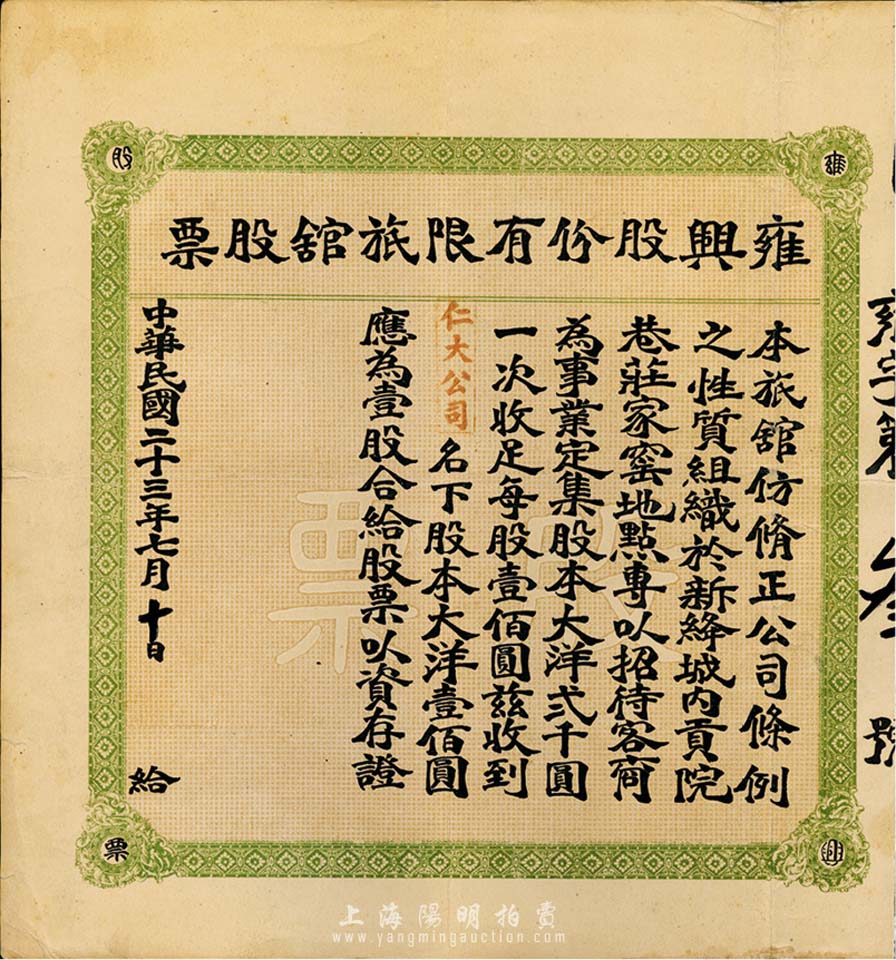 雍興股份有限旅舘股票
本旅舘仿脩正公司條例
之性質組織於新絳城內貢院
巷莊家窰地點專以招待客商
為事業定集股本大洋弍千圓
一次收足每股壹佰圓茲收到
仁大公司名下股本大洋壹佰圓
應為壹股合給股票以資存證
中華民國二十三年七月十日給
雍
興
股
票
股票
上海陽明拍賣
www.yangmingauction.com